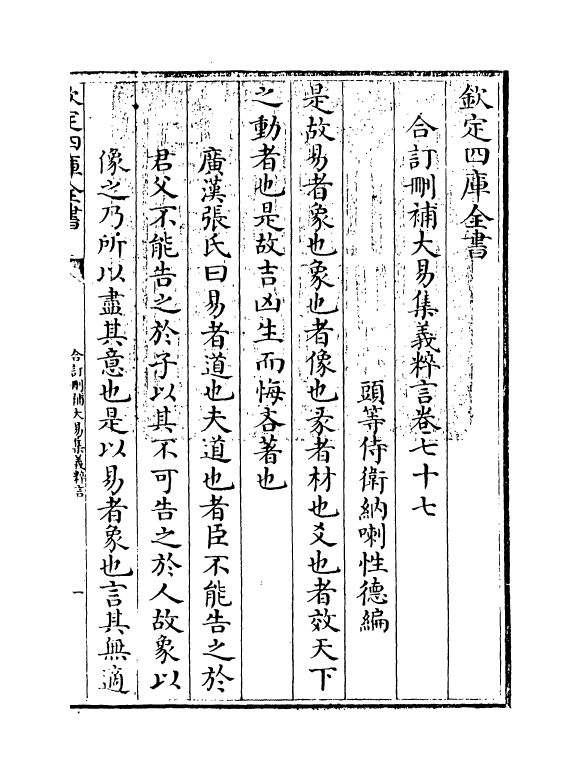 欽定四庫全書
合訂刪補大易集義粹言卷七十七
頭等侍衛納喇性德編
是故易者象也象也者像也彖者材也爻也者效天下
之動者也是故吉凶生而悔吝著也
廣漢張氏曰易者道也夫道也者臣不能告之於
君父不能告之於子以其不可告之於人故象以
像之乃所以盡其意也是以易者象也言其無適
欽定四庫全書
合訂刪補大易集義粹言
一